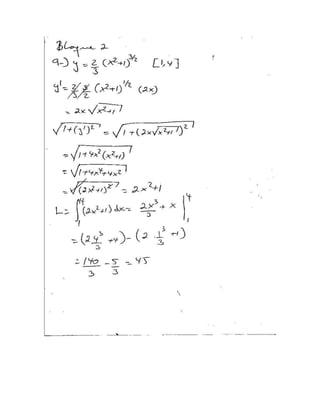 Bloque 2
9-) y = 2/3 (x²+1)^3/2 [1,4]
y' = 2/3 · 3/2 (x²+1)^1/2 (2x)
= 2x √(x²+1)
√(1+(y')²) = √(1+(2x√(x²+1))²)
= √(1+4x²(x²+1))
= √(1+4x⁴+4x²)
= √((2x²+1)²) = 2x²+1
L = ∫₁⁴ (2x²+1) dx = 2x³/3 + x |₁⁴
= (2·4³/3 +4) - (2·1³/3 +1)
= 140/3 - 5/3 = 45